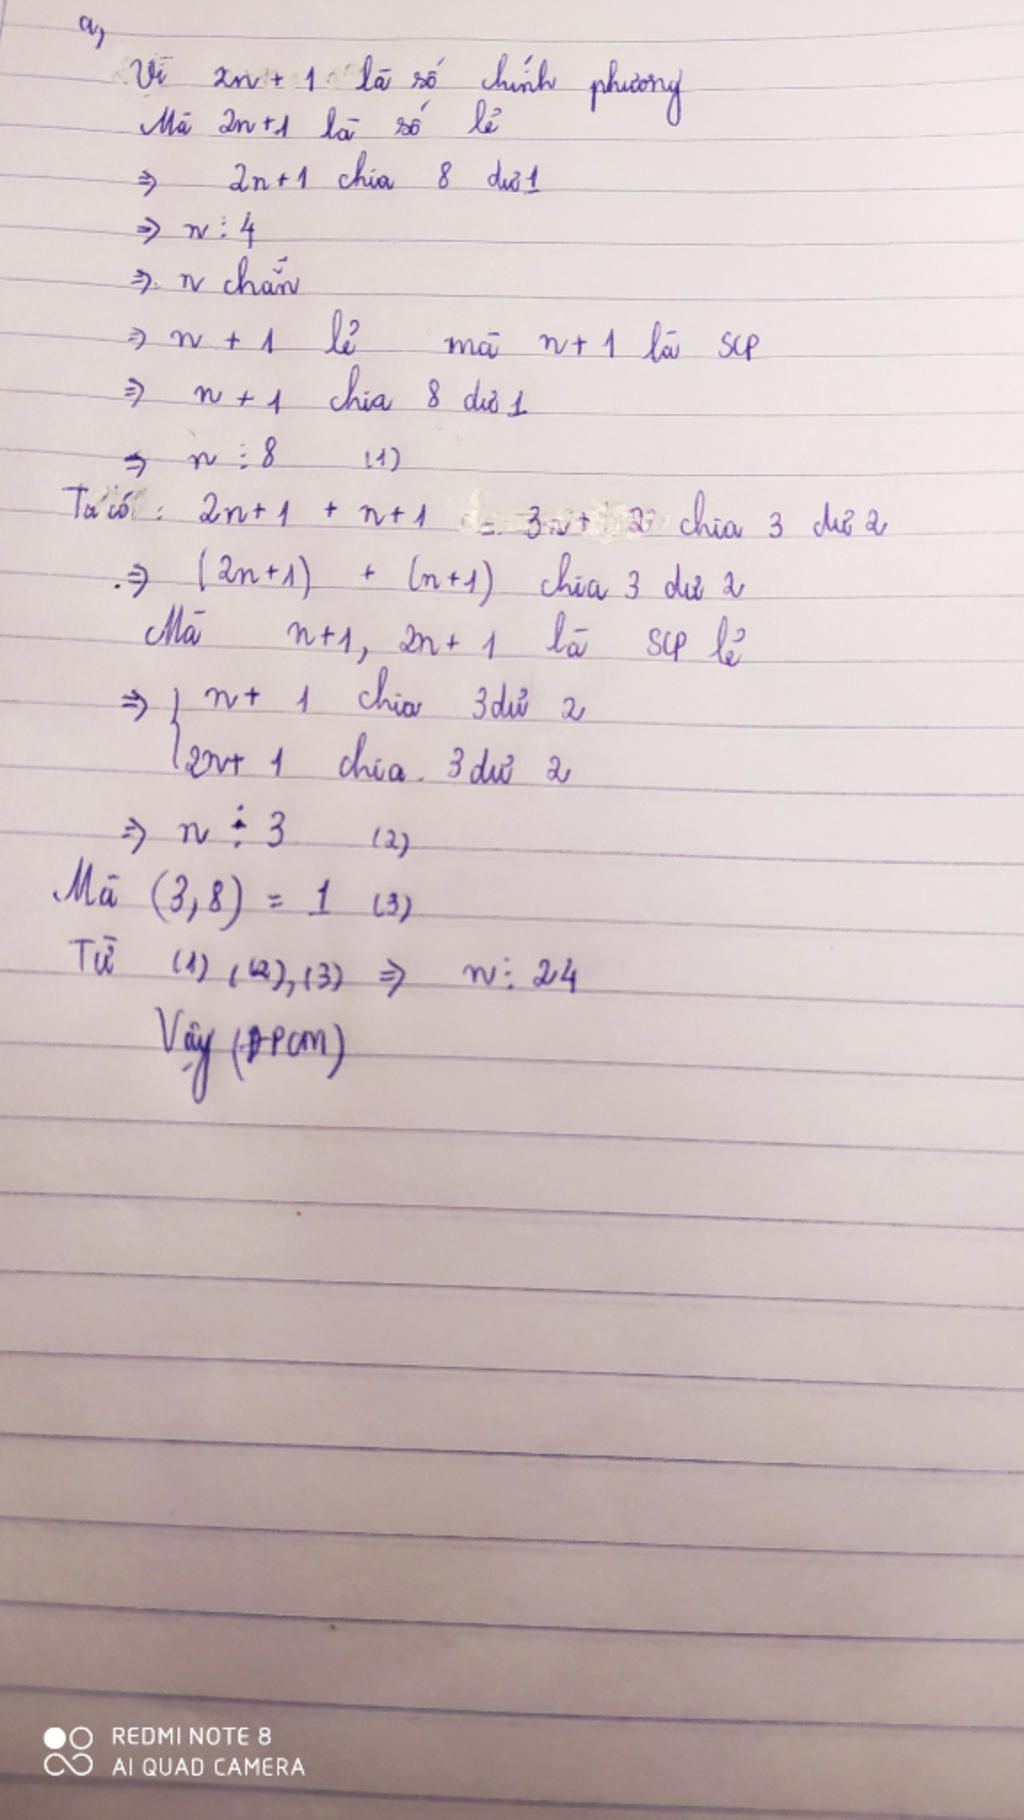 a,
Vì 2n + 1 là số chính phương
Mà 2n+1 là số lẻ
⇒ 2n+1 chia 8 dư 1
⇒ n ⋮ 4
⇒ n chẵn
⇒ n + 1 lẻ mà n+1 là SCP
⇒ n + 1 chia 8 dư 1
⇒ n ⋮ 8 (1)
Ta có : 2n+1 + n+1 = 3n + 2 chia 3 dư 2
⇒ (2n+1) + (n+1) chia 3 dư 2
Mà n+1, 2n+1 là SCP lẻ
⇒ { n + 1 chia 3 dư 2
2n+ 1 chia 3 dư 2
⇒ n ⋮ 3 (2)
Mà (3,8) = 1 (3)
Từ (1), (2), (3) ⇒ n ⋮ 24
Vậy (ĐPCM)
REDMI NOTE 8
AI QUAD CAMERA